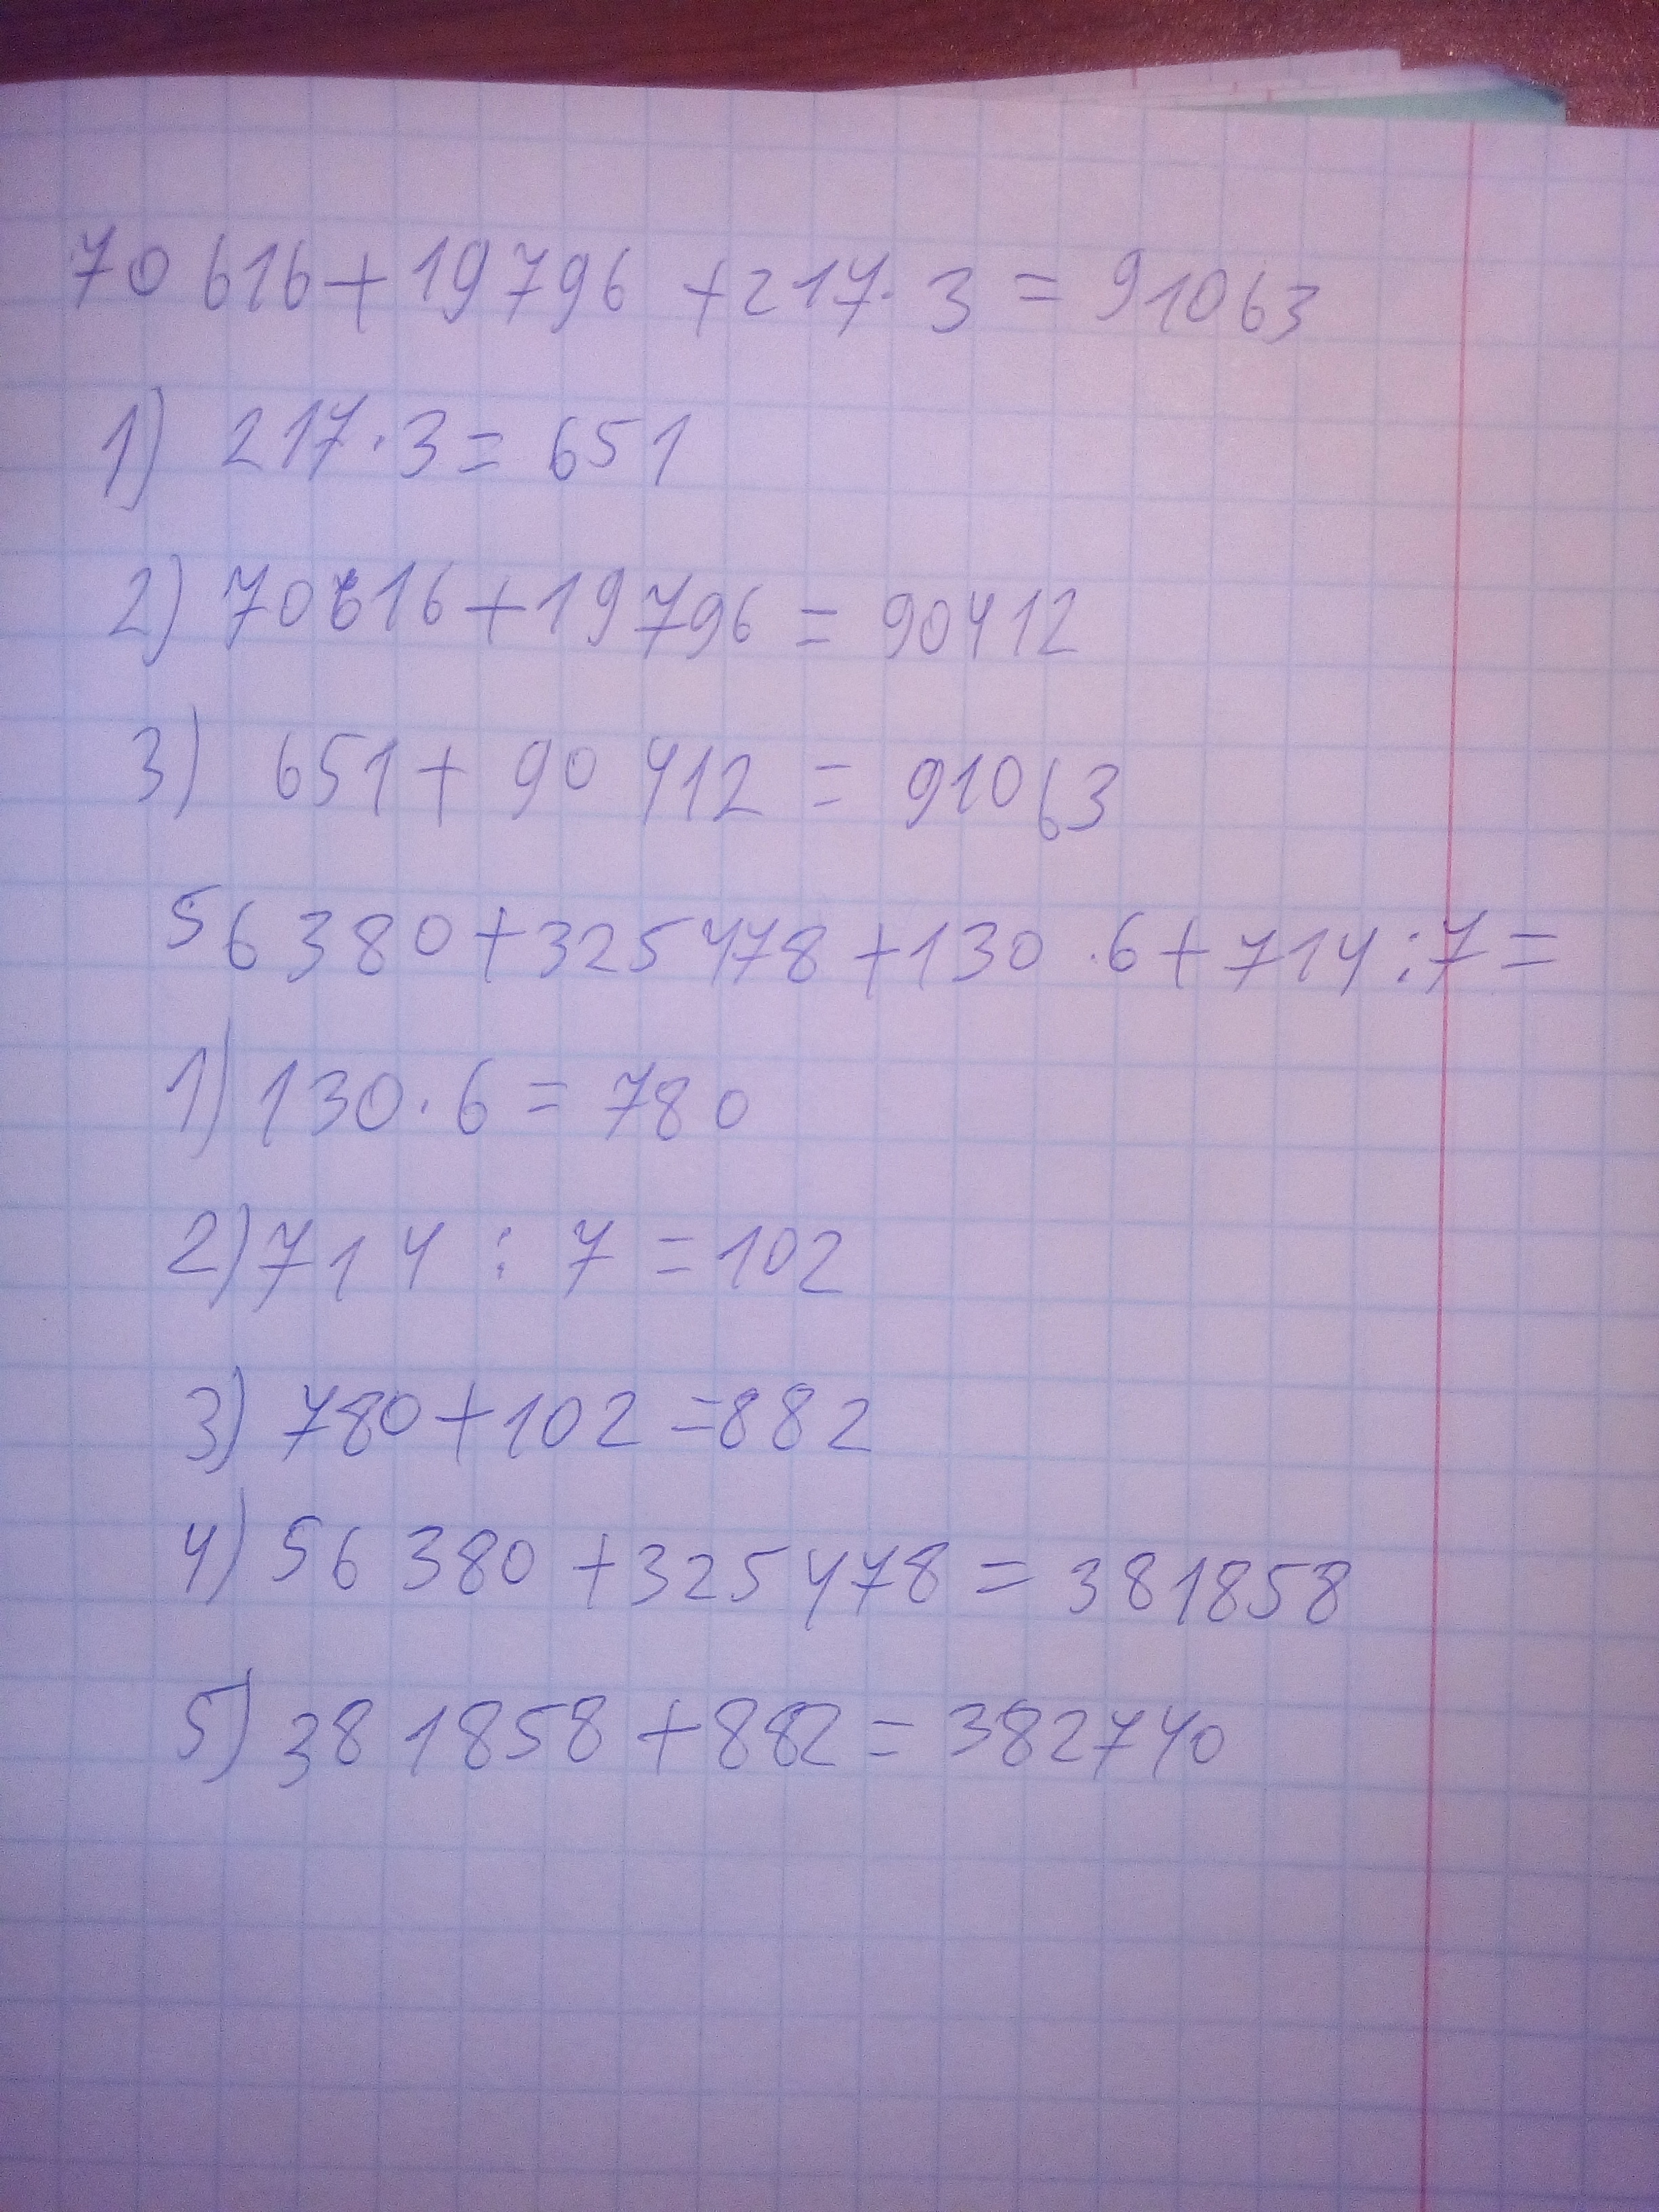 70 616 + 19 796 + 217 · 3 = 91063
1) 217 · 3 = 651
2) 70616 + 19 796 = 90412
3) 651 + 90 412 = 91063
56 380 + 325 478 + 130 · 6 + 714 : 7 =
1) 130 · 6 = 780
2) 714 : 7 = 102
3) 780 + 102 = 882
4) 56 380 + 325 478 = 381858
5) 381858 + 882 = 382740